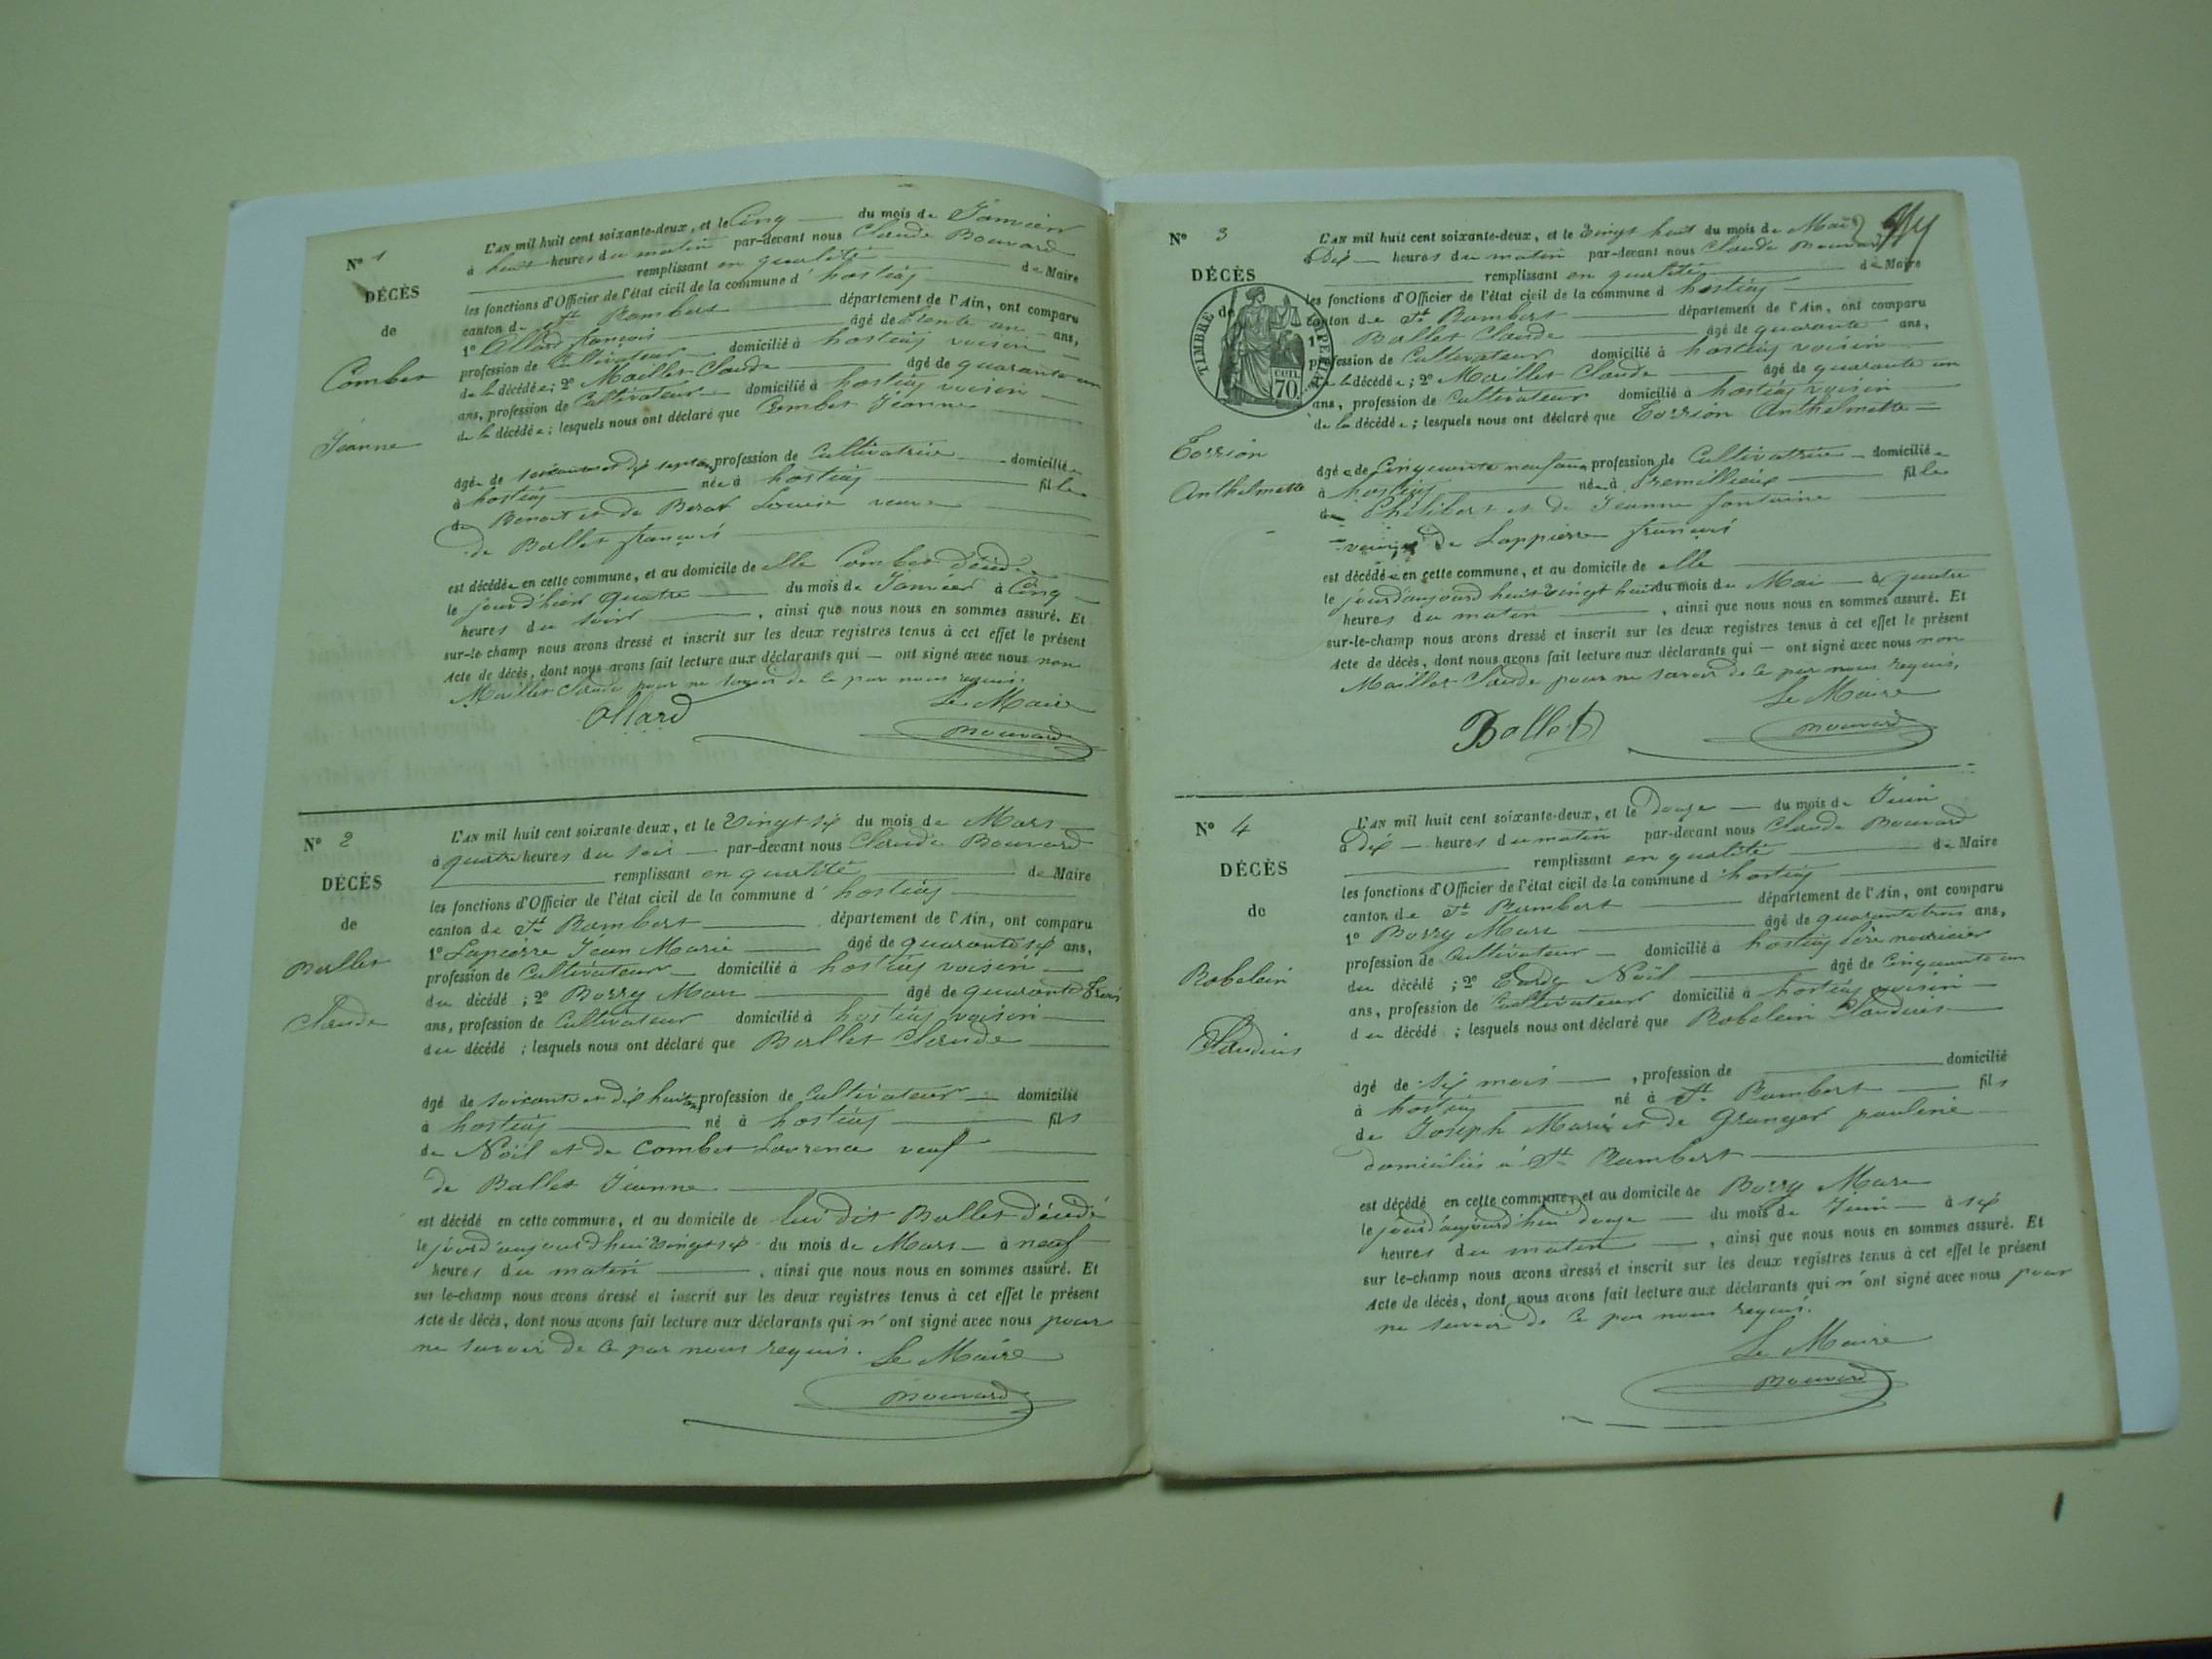 N° 1
DÉCÈS
de
Combet
Jeanne
L'AN mil huit cent soixante-deux, et le Cinq du mois de Janvier
à huit heures du matin par-devant nous Claude Bouvard
remplissant en qualité de Maire
les fonctions d'Officier de l'état civil de la commune d' hostiaz
canton de St Rambert département de l'Ain, ont comparu
1° Allard françois âgé de trente un ans,
profession de Cultivateur domicilié à hostiaz voisin
de la décédée; 2° Maillet Claude âgé de quarante un
ans, profession de Cultivateur domicilié à hostiaz voisin
de la décédée; lesquels nous ont déclaré que Combet Jeanne
âgée de soixante et dix sept ans profession de Cultivatrice domiciliée
à hostiaz née à hostiaz fille
de Benoit et de Berat Louise veuve
de Ballet françois
est décédée en cette commune, et au domicile de elle Combet décédée
le jour d'hier quatre du mois de Janvier à Cinq
heures du soir, ainsi que nous nous en sommes assuré. Et
sur-le champ nous avons dressé et inscrit sur les deux registres tenus à cet effet le présent
Acte de décès, dont nous avons fait lecture aux déclarants qui ont signé avec nous non
Maillet Claude pour ne savoir de ce par nous requis.
Le Maire
Allard
Bouvard
N° 2
DÉCÈS
de
Ballet
Claude
L'AN mil huit cent soixante deux, et le Vingt six du mois de Mars
à quatre heures du soir par-devant nous Claude Bouvard
remplissant en qualité de Maire
les fonctions d'Officier de l'état civil de la commune d' hostiaz
canton de St Rambert département de l'Ain, ont comparu
1° Lapierre Jean Marie âgé de quarante six ans,
profession de Cultivateur domicilié à hostiaz voisin
du décédé ; 2° Borry Marc âgé de quarante trois
ans, profession de Cultivateur domicilié à hostiaz voisin
du décédé ; lesquels nous ont déclaré que Ballet Claude
âgé de soixante et dix huit ans profession de Cultivateur domicilié
à hostiaz né à hostiaz fils
de Noël et de Combet Laurence veuf
de Ballet Jeanne
est décédé en cette commune, et au domicile de lui dit Ballet décédé
le jour d'aujourd'hui Vingt six du mois de Mars à neuf
heures du matin, ainsi que nous nous en sommes assuré. Et
sur le-champ nous avons dressé et inscrit sur les deux registres tenus à cet effet le présent
Acte de décès, dont nous avons fait lecture aux déclarants qui n'ont signé avec nous pour
ne savoir de ce par nous requis.
Le Maire
Bouvard
N° 3
DÉCÈS
de
TIMBRE IMPÉRIAL
CENT.
70
Torrion
Anthelmette
L'AN mil huit cent soixante-deux, et le Vingt huit du mois de Mai
à Dix heures du matin par-devant nous Claude Bouvard
remplissant en qualité de Maire
les fonctions d'Officier de l'état civil de la commune d hostiaz
canton de St Rambert département de l'Ain, ont comparu
1° Ballet Claude âgé de quarante ans,
profession de Cultivateur domicilié à hostiaz voisin
de la décédée; 2° Maillet Claude âgé de quarante un
ans, profession de Cultivateur domicilié à hostiaz voisin
de la décédée; lesquels nous ont déclaré que Torrion Anthelmette
âgée de Cinquante neuf ans profession de Cultivatrice domiciliée
à hostiaz née à Premillieux fille
de Philibert et de Jeanne fontaine
veuve de Lappierre françois
est décédée en cette commune, et au domicile de elle
le jour d'aujourd huit Vingt huit du mois de Mai à quatre
heures du matin, ainsi que nous nous en sommes assuré. Et
sur-le-champ nous avons dressé et inscrit sur les deux registres tenus à cet effet le présent
Acte de décès, dont nous avons fait lecture aux déclarants qui ont signé avec nous non
Maillet Claude pour ne savoir de ce par nous requis,
Le Maire
Ballet
Bouvard
N° 4
DÉCÈS
de
Robelein
Claudius
L'AN mil huit cent soixante-deux, et le Douze du mois de Juin
à Dix heures du matin par-devant nous Claude Bouvard
remplissant en qualité de Maire
les fonctions d'Officier de l'état civil de la commune d hostiaz
canton de St Rambert département de l'Ain, ont comparu
1° Borry Marc âgé de quarante trois ans,
profession de Cultivateur domicilié à hostiaz père nouricier
du décédé ; 2° Tardy Noël âgé de Cinquante un
ans, profession de Cultivateur domicilié à hostiaz voisin
du décédé ; lesquels nous ont déclaré que Robelein Claudius
âgé de six mois, profession de domicilié
à hostiaz né à St Rambert fils
de Joseph Marie et de Granger pauline
domiciliés à St Rambert
est décédé en cette commune, et au domicile de Borry Marc
le jour d'aujourd'hui douze du mois de Juin à six
heures du matin, ainsi que nous nous en sommes assuré. Et
sur le-champ nous avons dressé et inscrit sur les deux registres tenus à cet effet le présent
Acte de décès, dont nous avons fait lecture aux déclarants qui n'ont signé avec nous pour
ne savoir de ce par nous requis.
Le Maire
Bouvard